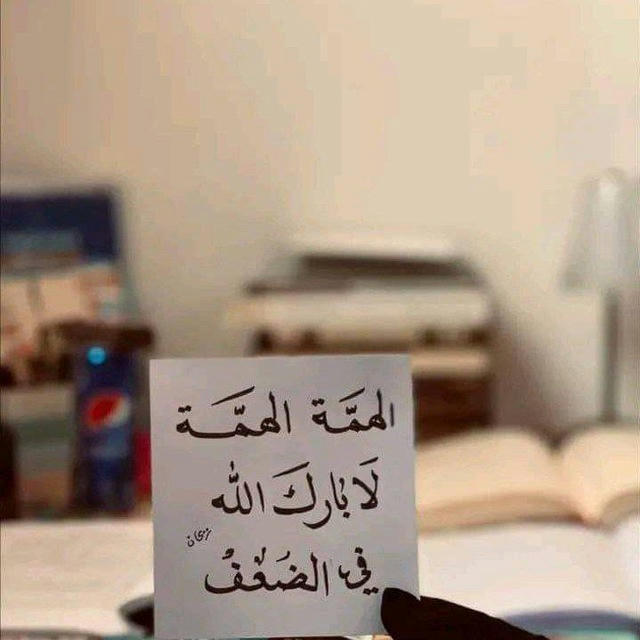 الهمَّة الهمَّـة
لَا بَارَكَ الله
في الضَعْفُ